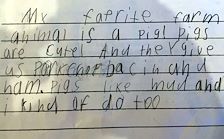 My faerite farm
animal is a pig! pigs
are cute! And they give
us bacin and
ham. pigs like mud and
i kind of do too